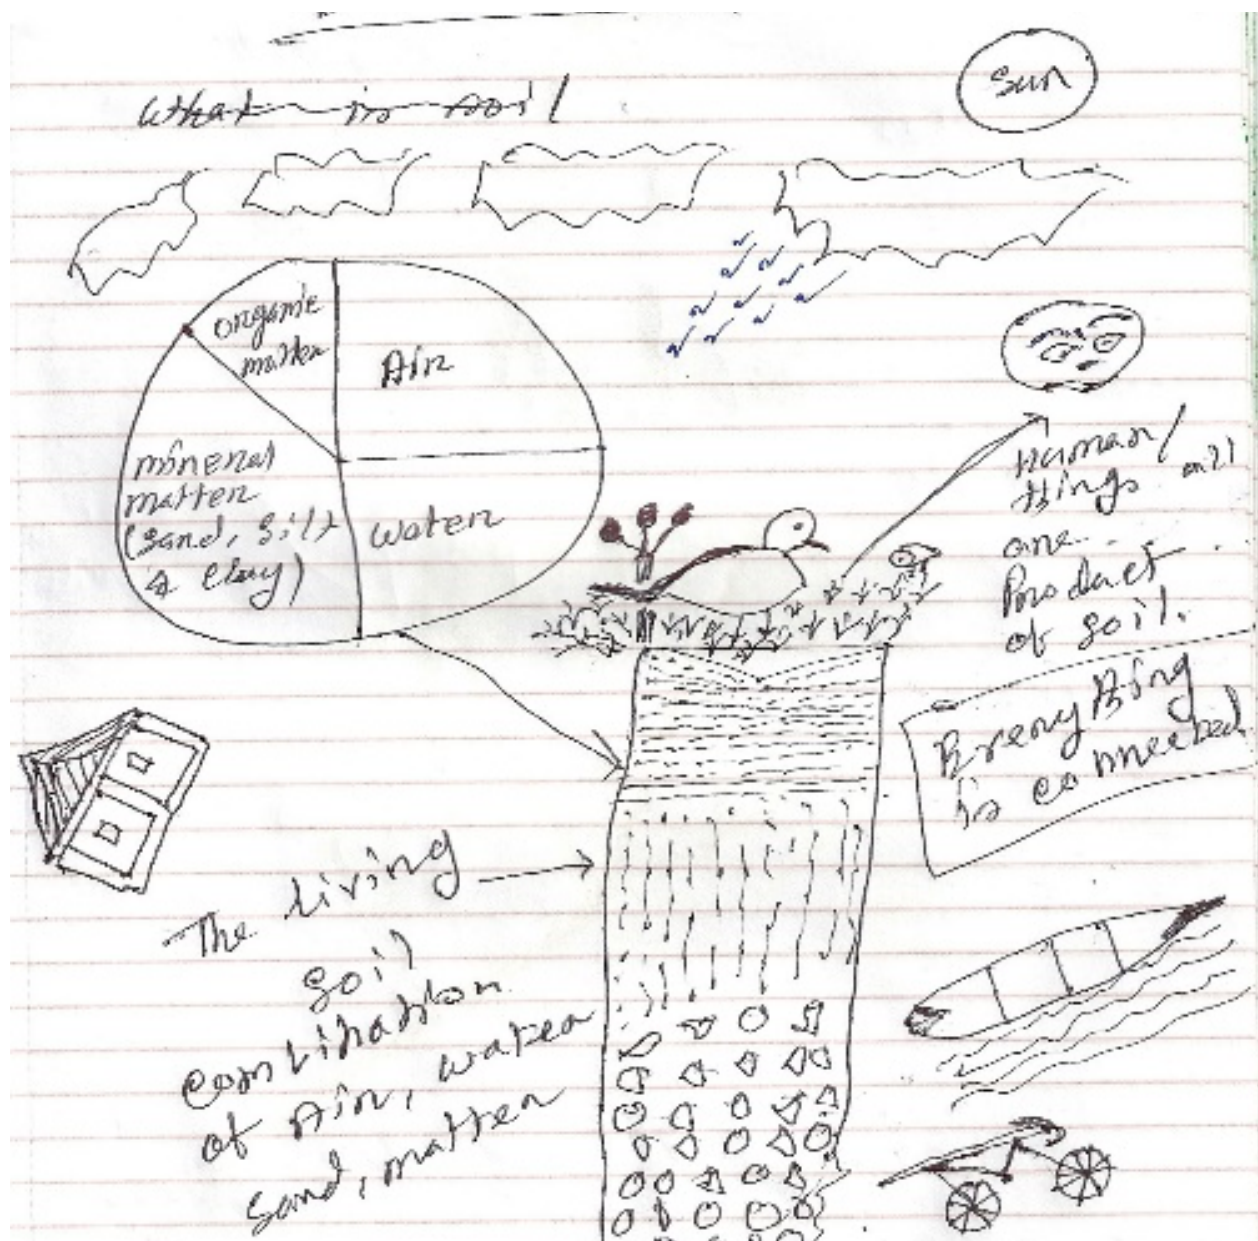 What is soil
Sun
organic
matter
Air
mineral
matter
(sand, silt
& clay)
water
Human/
things all
are
Product
of soil.
Everything
is connected
The living
soil
combination
of Air, water
sand, matter